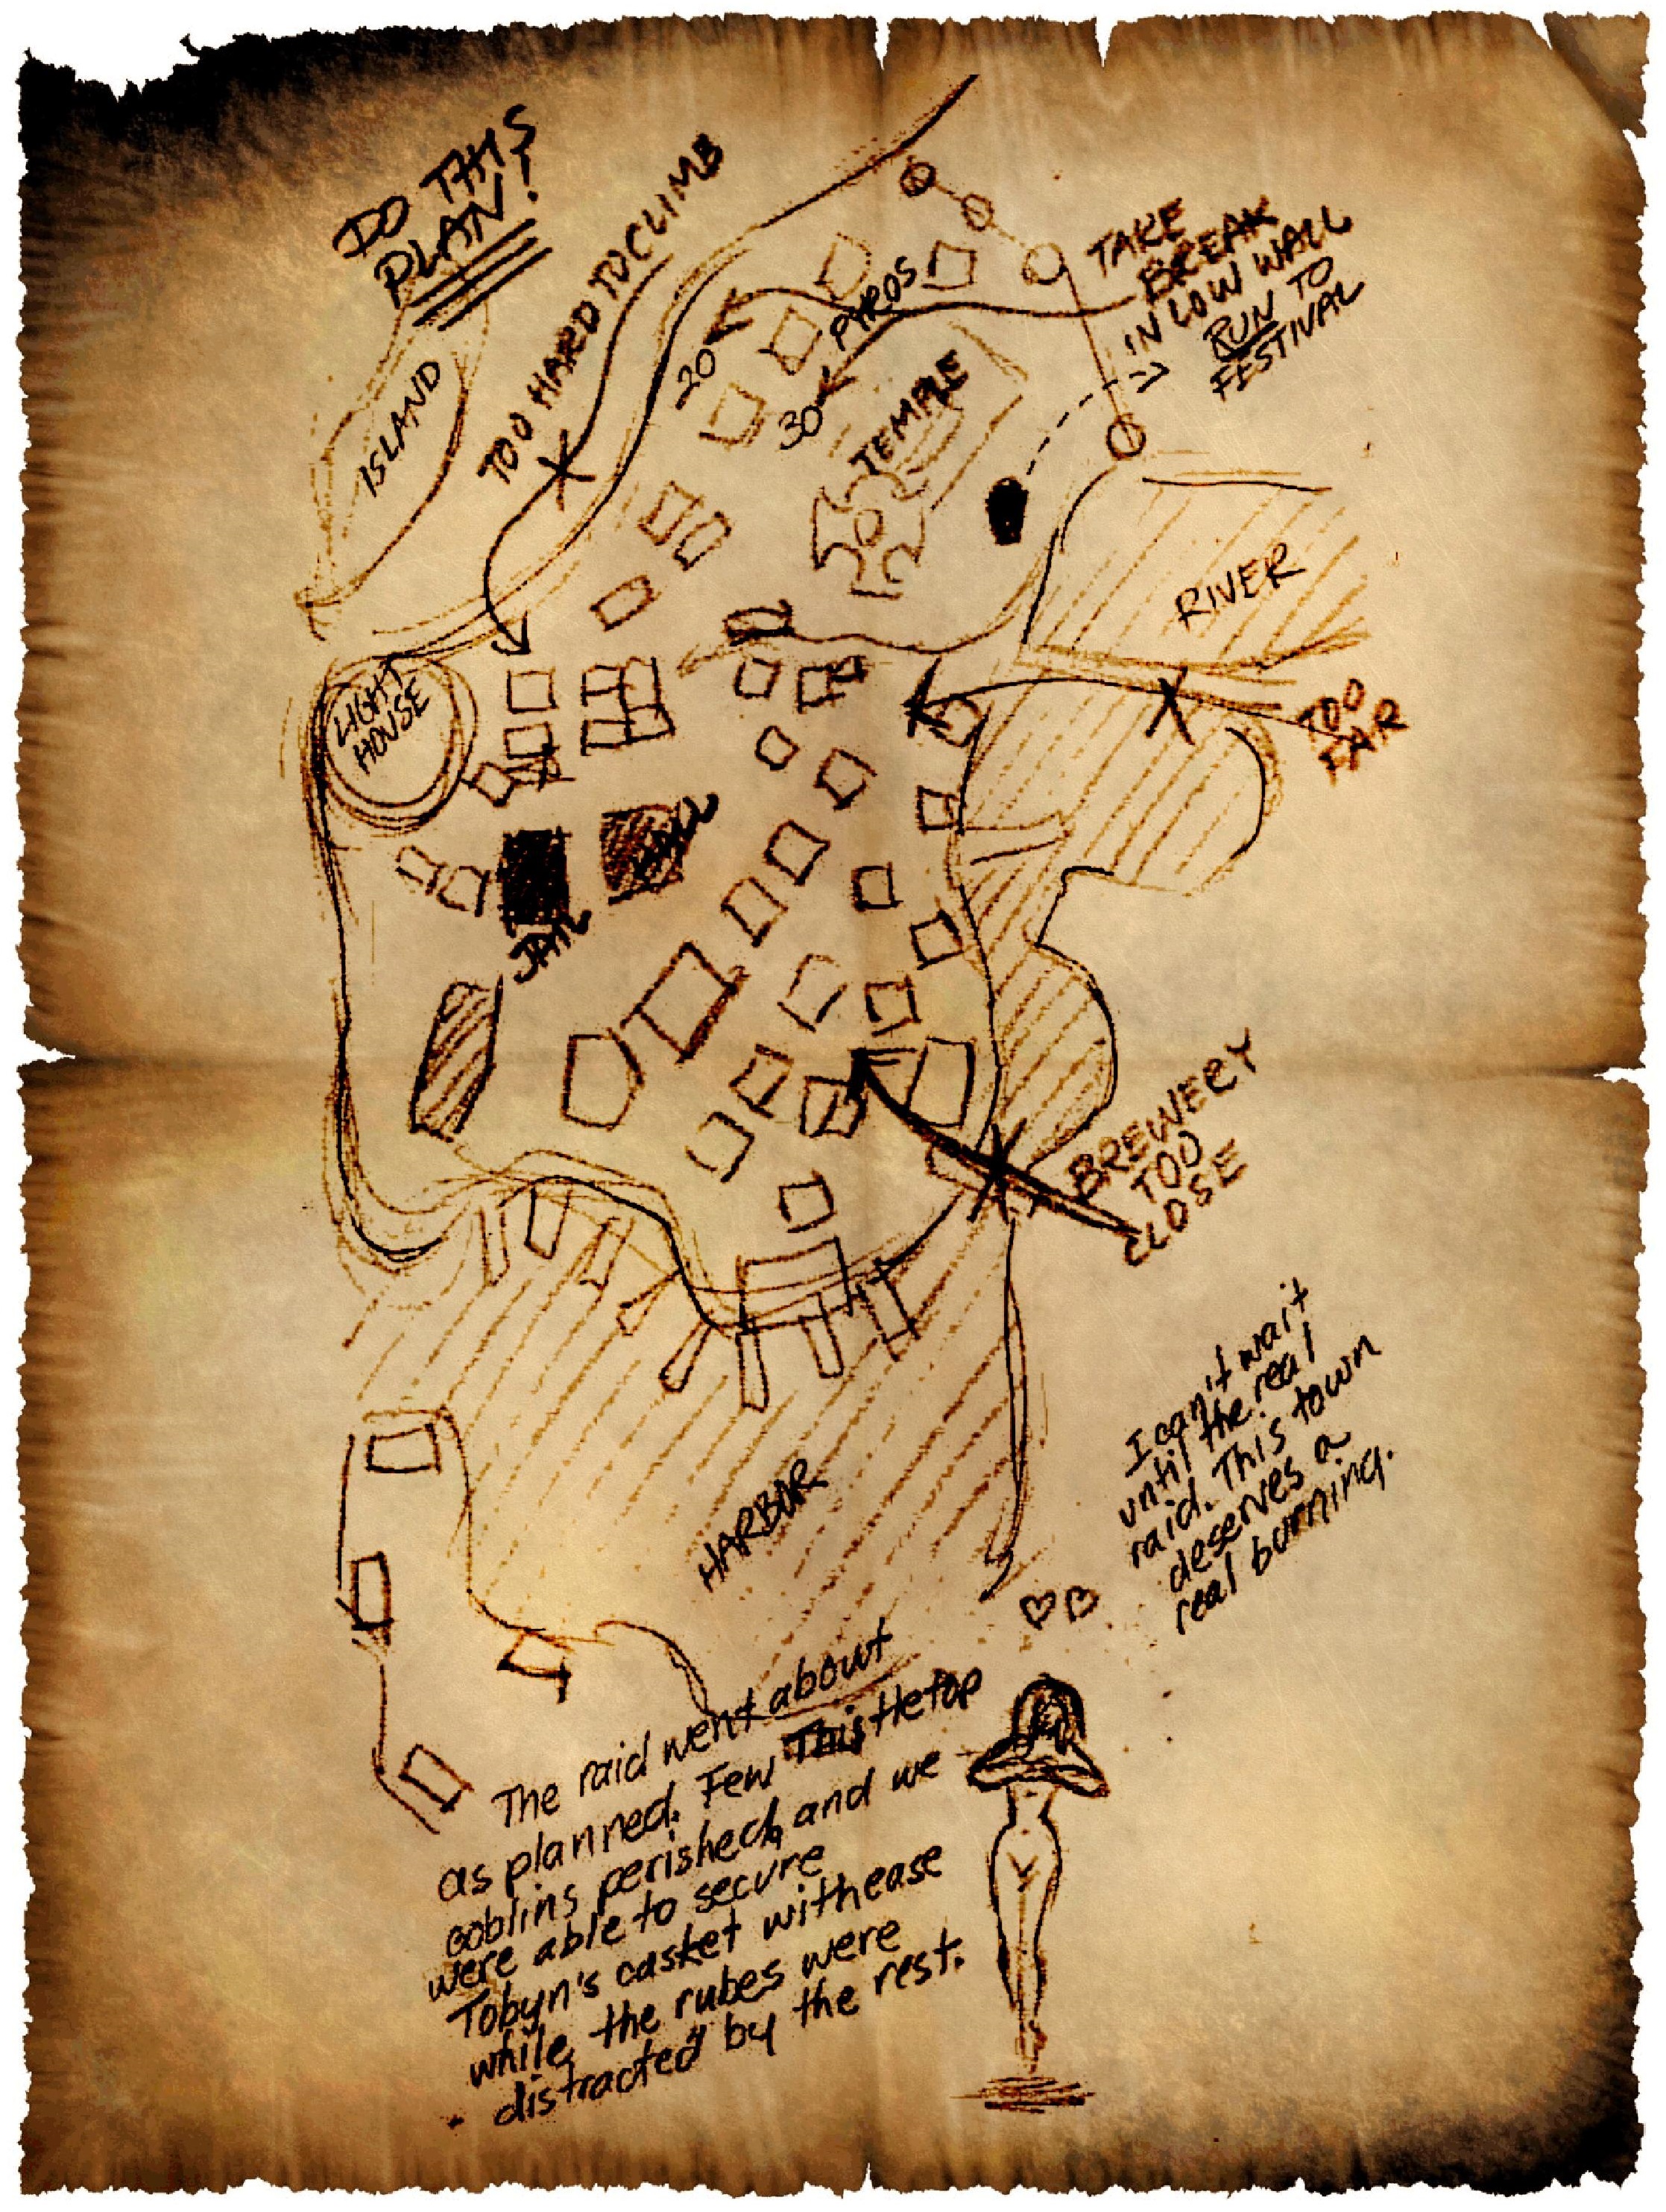 DO THIS
PLAN!
TOO HARD TO CLIMB
ISLAND
TAKE
BREAK
IN LOW WALL
RUN TO
FESTIVAL
PYROS
20
30
TEMPLE
RIVER
TOO
FAR
LIGHT
HOUSE
HALL
JAIL
BREWERY
TOO
CLOSE
HARBOR
I can't wait
until the real
raid. This town
deserves a
real burning.
The raid went about
as planned. Few Thistletop
goblins perished, and we
were able to secure
Tobyn's casket with ease
while the rubes were
distracted by the rest.